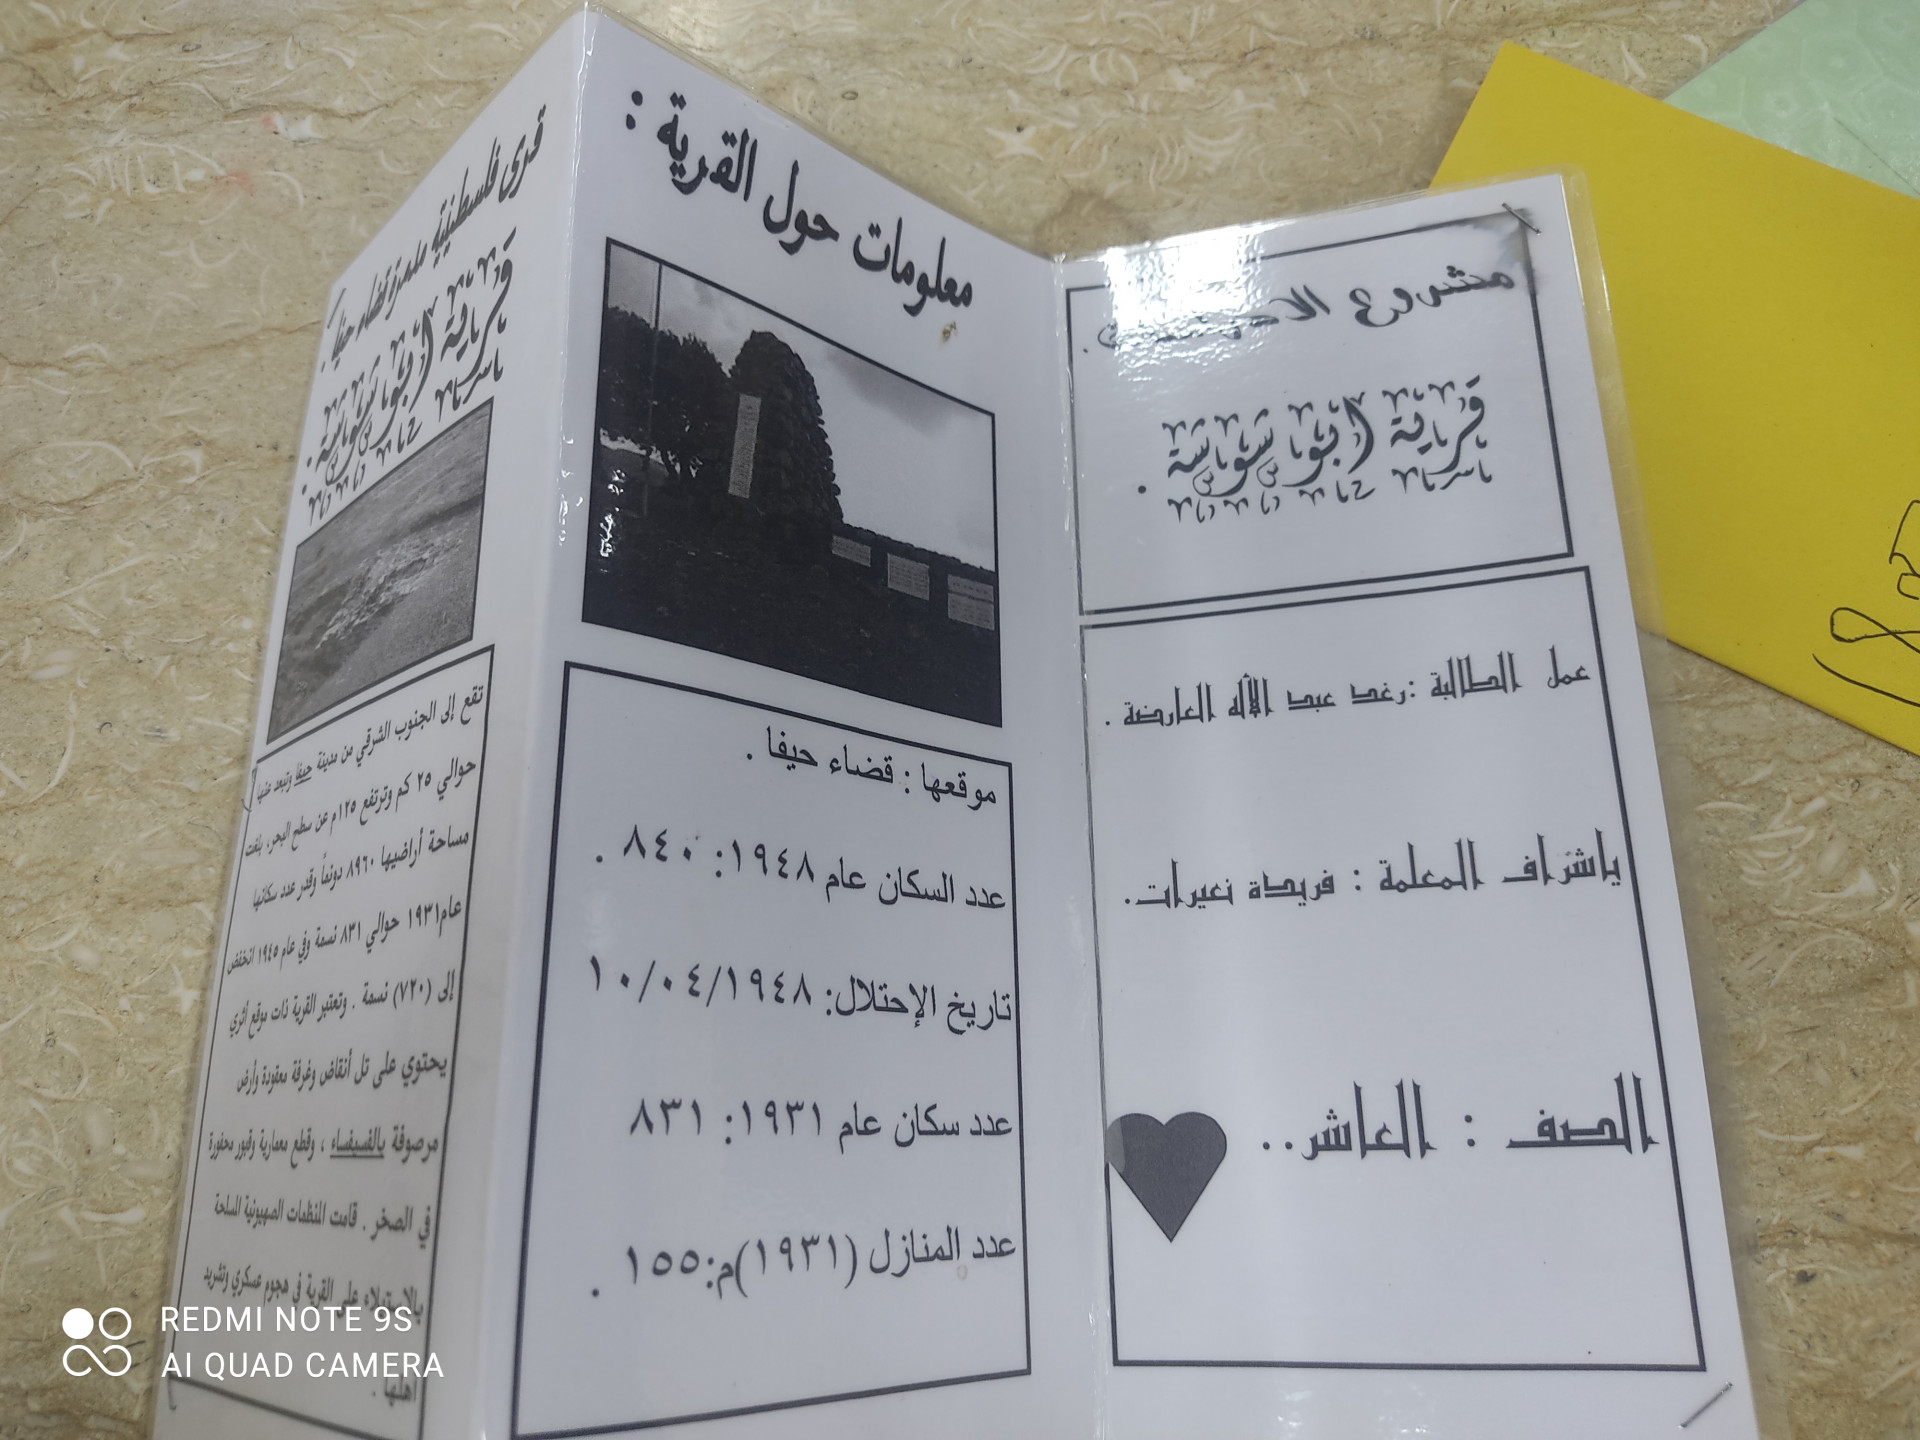 مشروع
قرية أبو شوشة .
عمل الطالبة :رغد عبد الأله العارضة .
ياشراف المعلمة : فريدة نعيرات.
الصف : العاشر..
معلومات حول القرية :
موقعها : قضاء حيفا .
عدد السكان عام ١٩٤٨: ٨٤٠ .
تاريخ الإحتلال: ١٠/٠٤/١٩٤٨
عدد سكان عام ١٩٣١: ٨٣١
عدد المنازل (١٩٣١)م:١٥٥ .
قرى فلسطينية مدمرة قضاء حيفا :
قرية أبو شوشة :
تقع إلى الجنوب الشرقي من مدينة حيفا وتبعد عنها
حوالي ٢٥ كم وترتفع ١٢٥م عن سطح البحر، بلغت
مساحة أراضيها ٨٩٦٠ دونماً وقدر عدد سكانها
عام١٩٣١ حوالي ٨٣١ نسمة وفي عام ١٩٤٥ انخفض
إلى (٧٢٠) نسمة . وتعتبر القرية ذات موقع أثري
يحتوي على تل أنقاض وغرفة معقودة وأرض
مرصوفة بالفسيفساء ، وقطع معمارية وقبور محفورة
في الصخر . قامت المنظمات الصهيونية المسلحة
بالاستيلاء على القرية في هجوم عسكري وتشريد
أهلها .
REDMI NOTE 9S
AI QUAD CAMERA